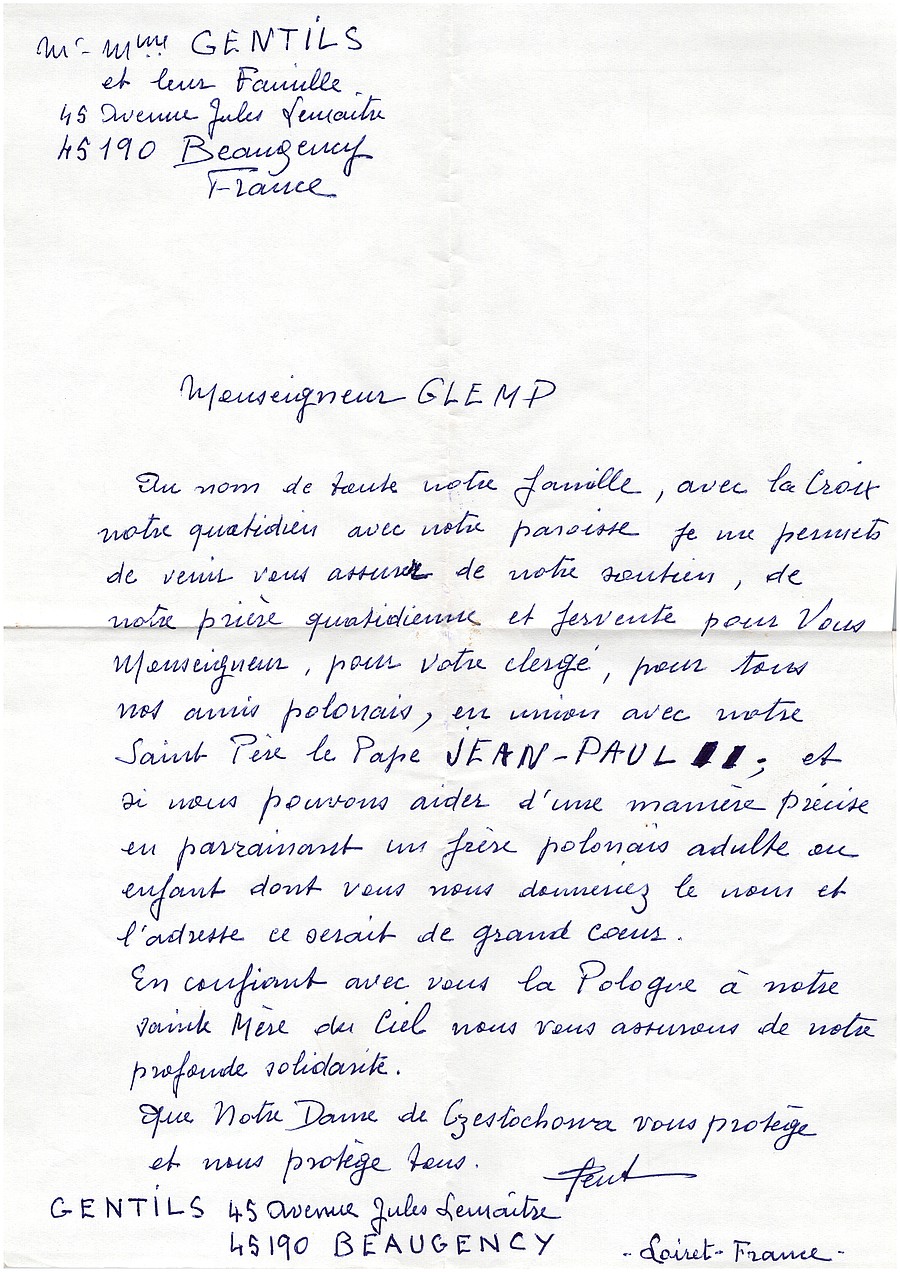 Mr - Mme GENTILS
et leur Famille
45 Avenue Jules Lemaître
45190 Beaugency
France
Monseigneur GLEMP
Au nom de toute notre famille, avec la Croix
notre quotidien avec notre paroisse je me permets
de venir vous assurer de notre soutien, de
notre prière quotidienne et fervente pour Vous
Monseigneur, pour votre clergé, pour tous
nos amis polonais, en union avec notre
Saint Père le Pape JEAN-PAUL II ; et
si nous pouvons aider d'une manière précise
en parrainant un frère polonais adulte ou
enfant dont vous nous donneriez le nom et
l'adresse ce serait de grand cœur.
En confiant avec vous la Pologne à notre
sainte Mère du Ciel nous vous assurons de notre
profonde solidarité.
Que Notre Dame de Czestochowa vous protège
et nous protège tous.
GENTILS 45 Avenue Jules Lemaître
45190 BEAUGENCY - Loiret - France -